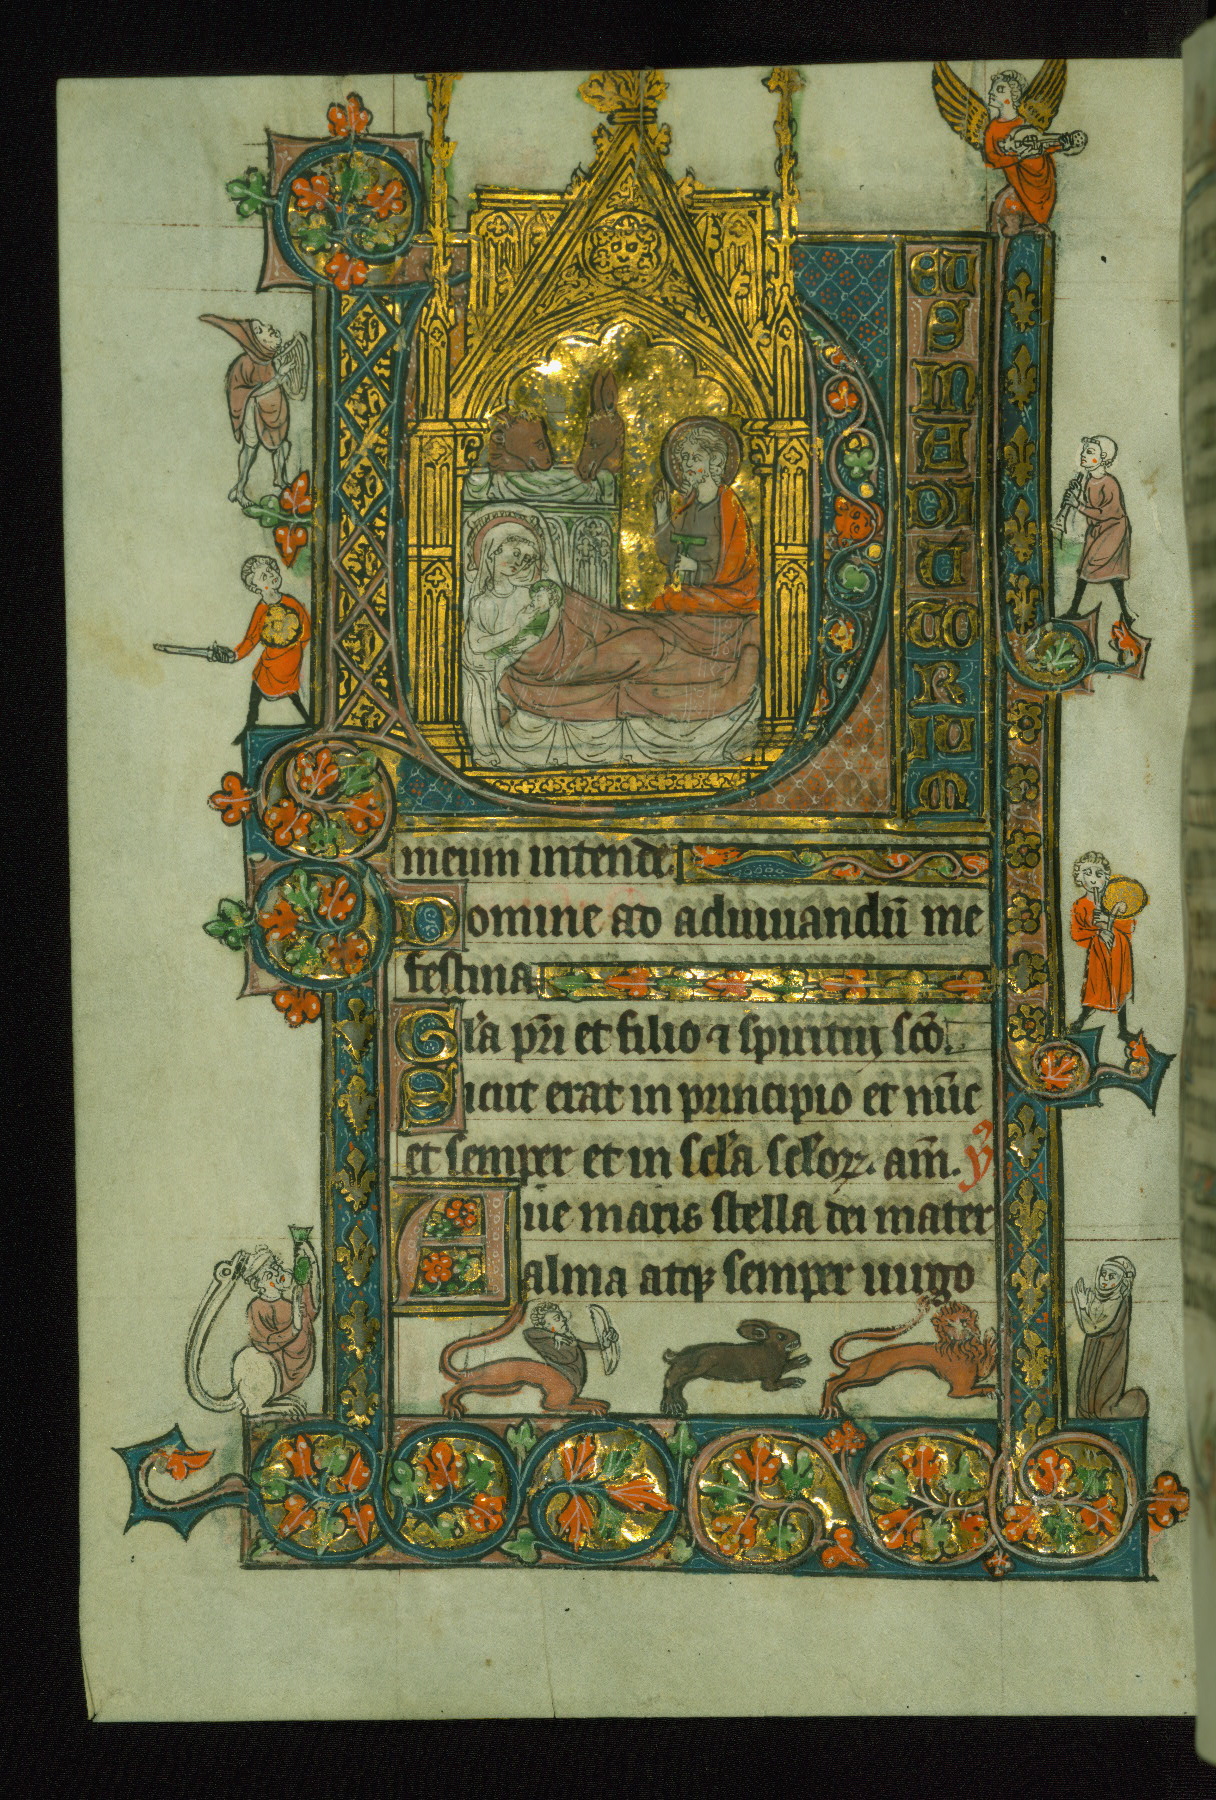 D
EU
S
IN
A
DI
U
TO
R
IU
M
meum intende
Domine ad adiuuandū me
festina
Gl'a pr̄i et filio ⁊ spiritui scō.
Sicut erat in principio et nūc
et semper et in sc̄la sc̄loꝝ. am̄. ℣
Aue maris stella dei mater
alma atqꝫ semper uirgo